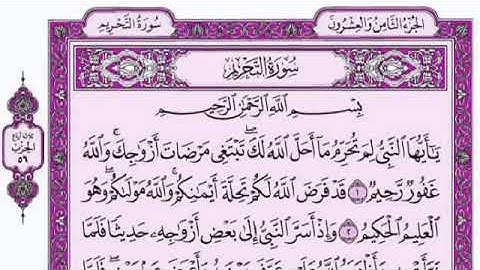 الجزء الثامن والعشرون
سورة التحريم
سُورَةُ التَّحْرِيمِ
بِسْمِ اللَّهِ الرَّحْمَٰنِ الرَّحِيمِ
يَٰٓأَيُّهَا النَّبِيُّ لِمَ تُحَرِّمُ مَآ أَحَلَّ اللَّهُ لَكَ تَبْتَغِي مَرْضَاتَ أَزْوَٰجِكَ وَاللَّهُ
غَفُورٌ رَّحِيمٌ ١ قَدْ فَرَضَ اللَّهُ لَكُمْ تَحِلَّةَ أَيْمَٰنِكُمْ وَاللَّهُ مَوْلَىٰكُمْ وَهُوَ
الْعَلِيمُ الْحَكِيمُ ٢ وَإِذْ أَسَرَّ النَّبِيُّ إِلَىٰ بَعْضِ أَزْوَٰجِهِ حَدِيثًا فَلَمَّا
الحزب
٥٦